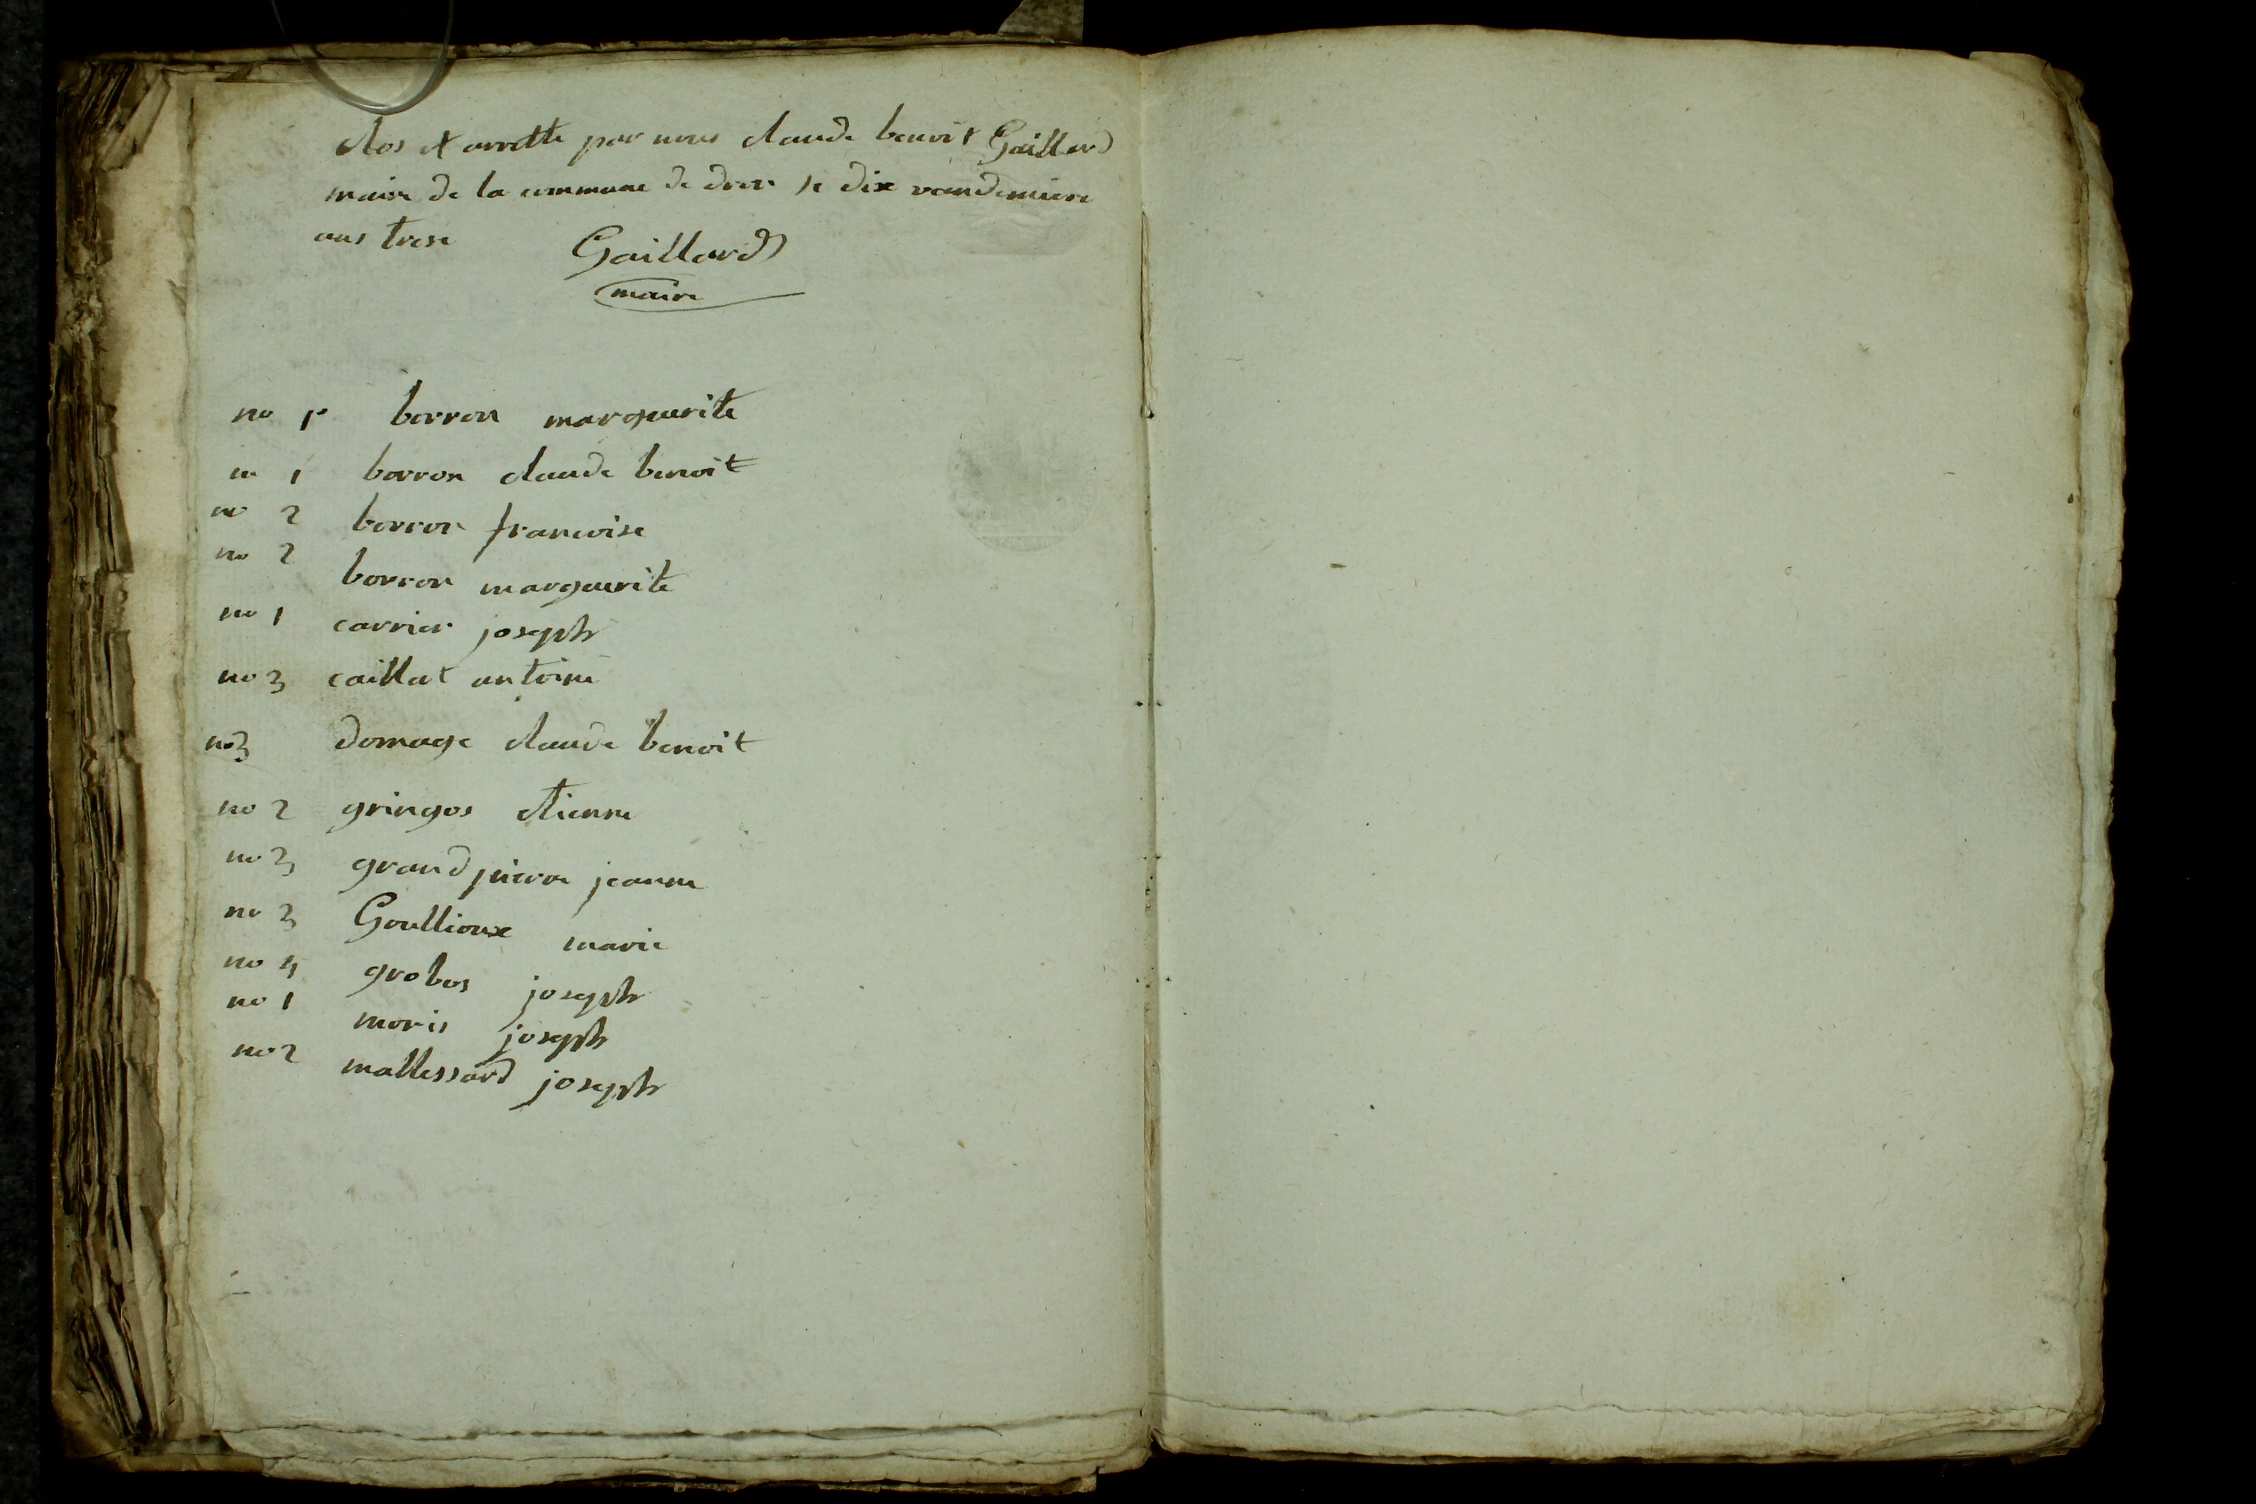 clos et arrette par nous claude benoit Gaillard
maire de la commune de drom le dix vandemiere
ans trese
Gaillard
maire
no 1er borron marguerite
no 1 borron claude benoit
no 2 borron francoise
no 2 borron marguerite
no 1 carrier joseph
no 3 caillat antoine
no 3 domage claude benoit
no 2 gringos etienne
no 3 grandpierre jeanne
no 3 Goullioux marie
no 4 grobos joseph
no 1 moris joseph
no 2 mallessard joseph